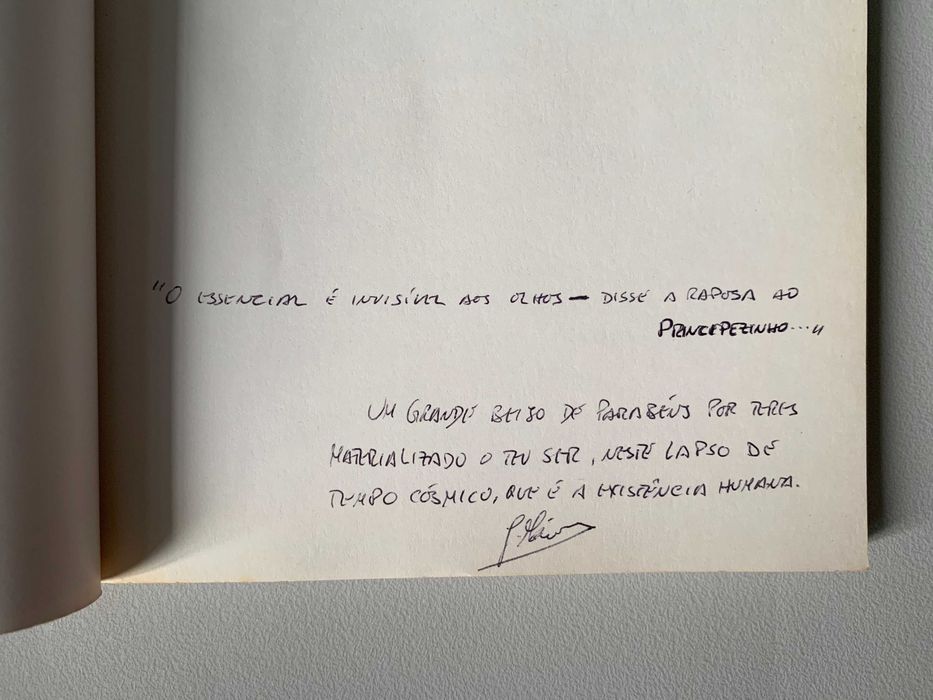 "O ESSENCIAL É INVISÍVEL AOS OLHOS — DISSE A RAPOSA AO
PRINCEPEZINHO..."
UM GRANDE BEIJO DE PARABÉNS POR TERES
MATERIALIZADO O TEU SER, NESTE LAPSO DE
TEMPO CÓSMICO, QUE É A EXISTÊNCIA HUMANA.